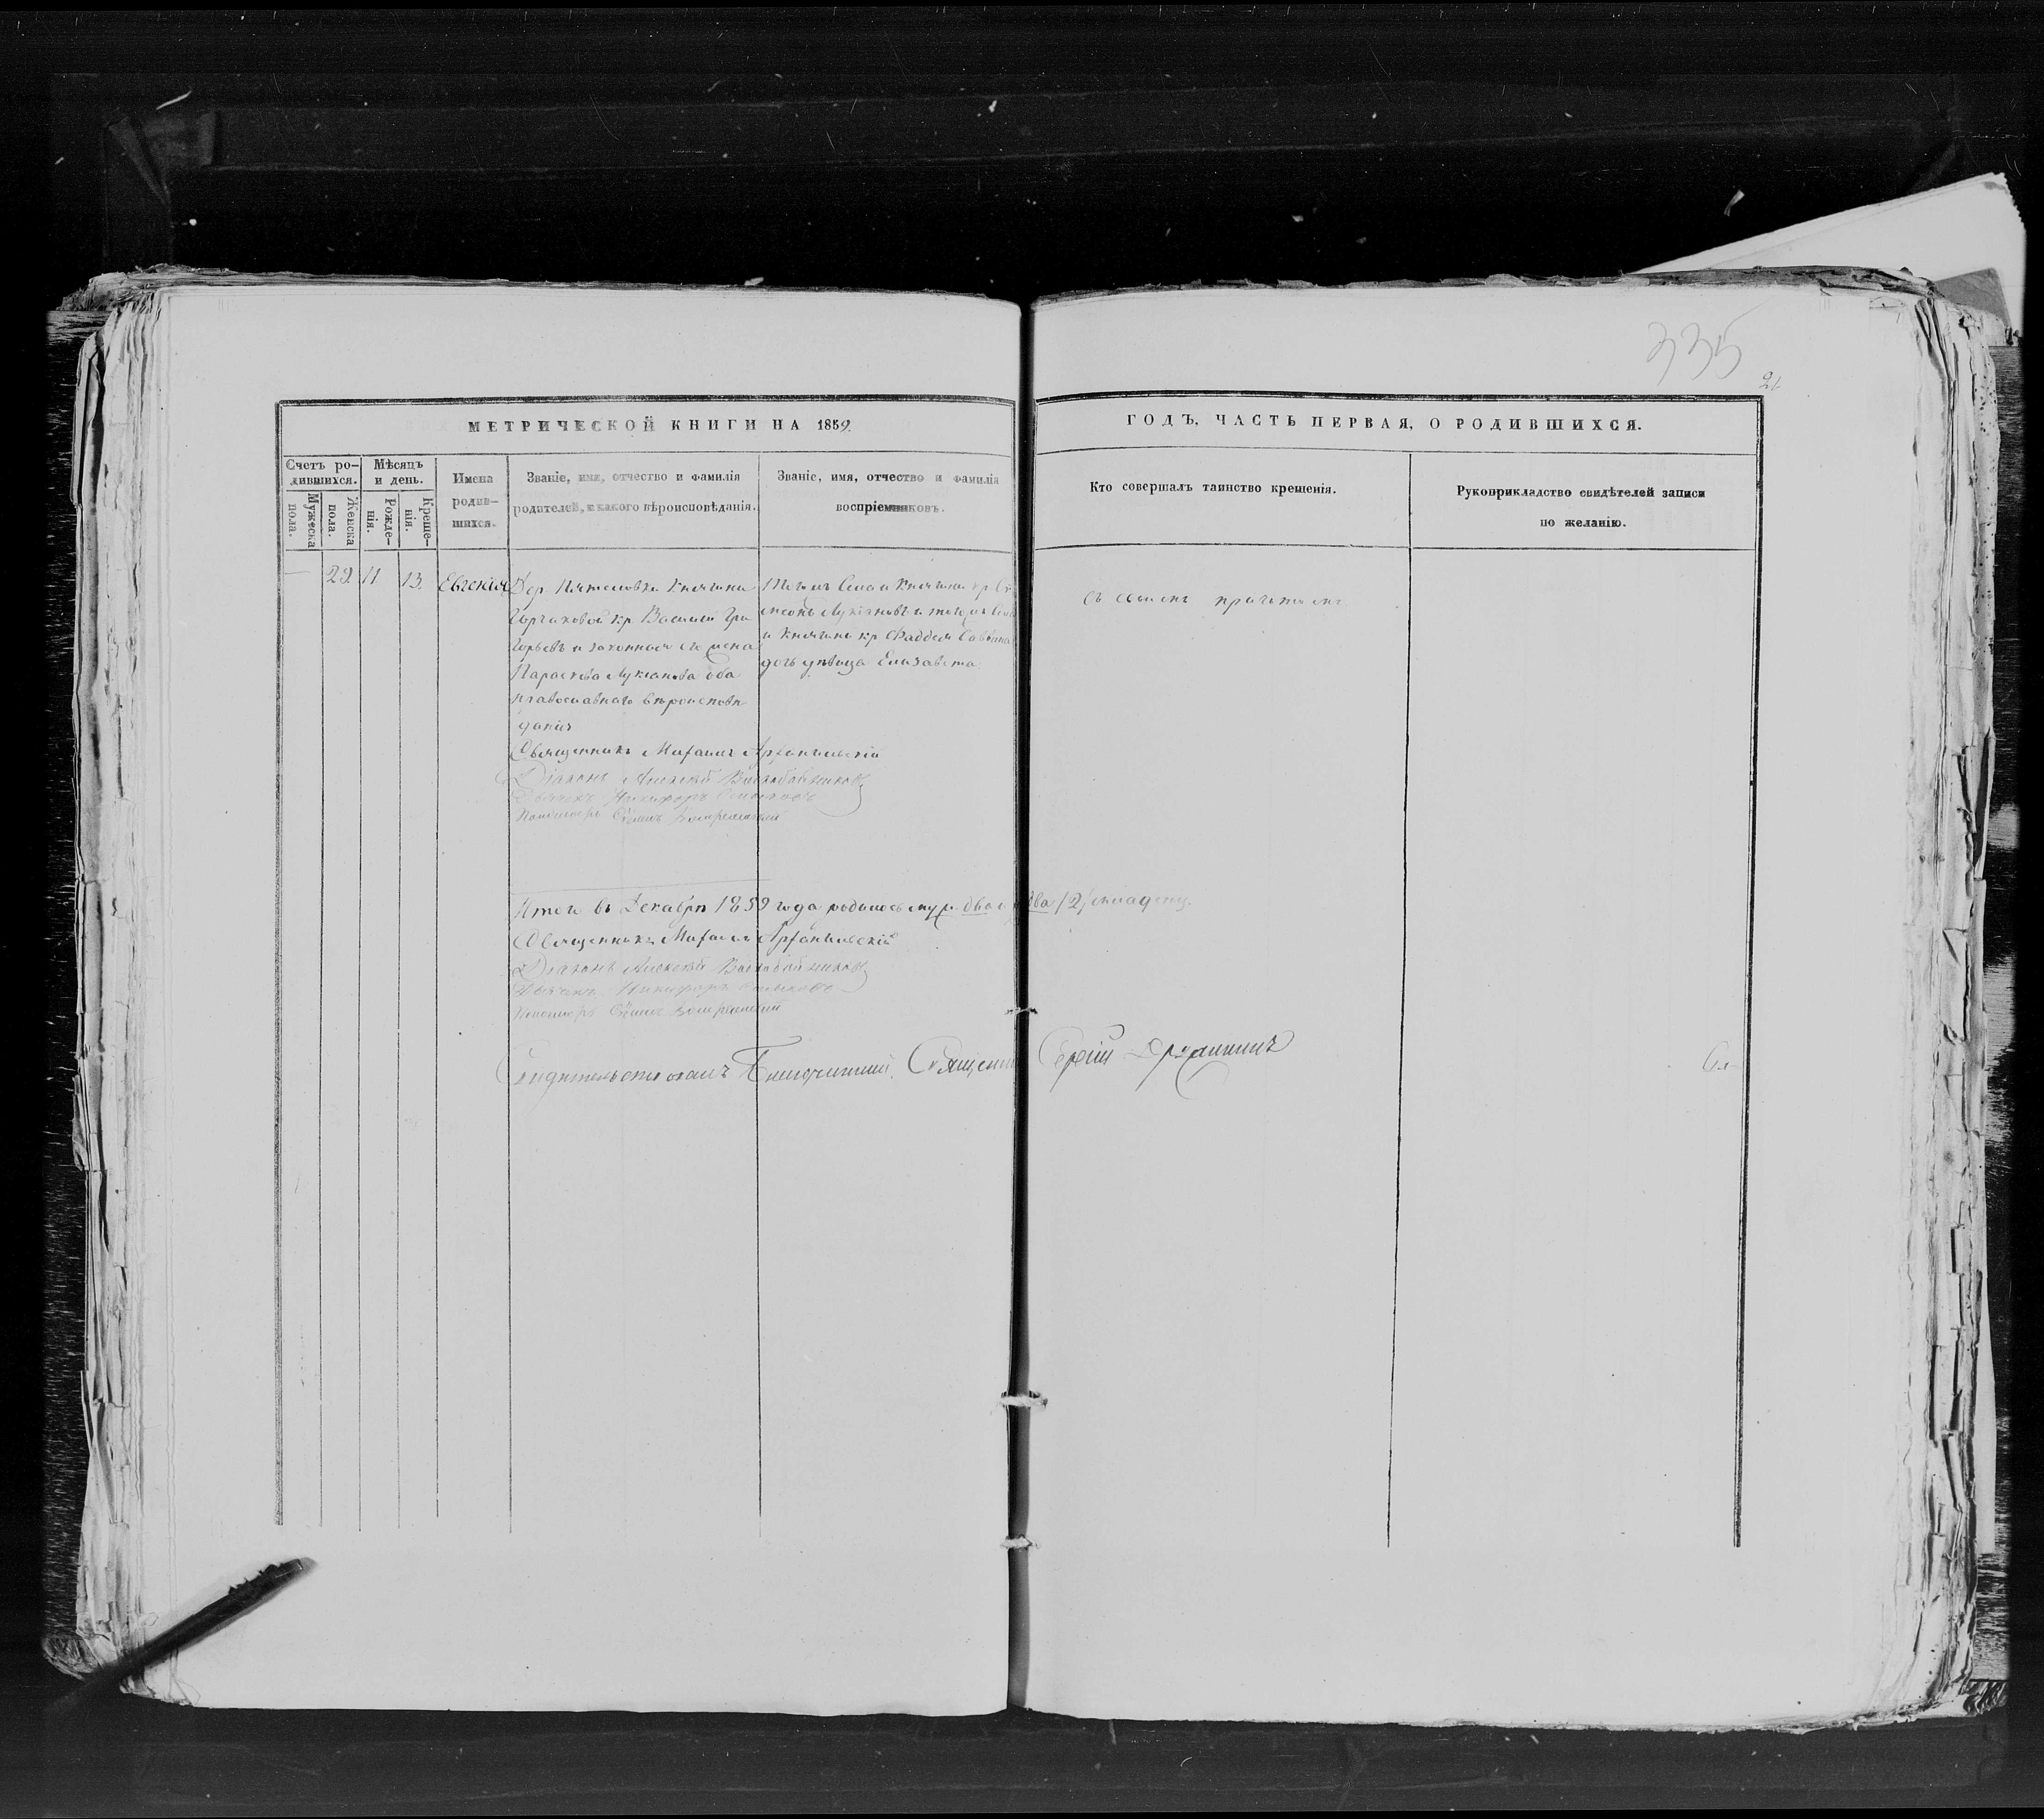 335
21
МЕТРИЧЕСКОЙ КНИГИ НА 1859.
ГОДЪ, ЧАСТЬ ПЕРВАЯ, О РОДИВШИХСЯ.
Счетъ ро-
дившихся.
Мужеска
пола.
Женска
пола.
Мѣсяцъ
и день.
Рожде-
нія.
Креще-
нія.
Имена
родив-
шихся.
Званіе, имя, отчество и фамилія
родителей, и какого вѣроисповѣданія.
Званіе, имя, отчество и фамилія
воспріемниковъ.
Кто совершалъ таинство крещенія.
Рукоприкладство свидѣтелей записи
по желанію.
— 22 11 13. Евгенія
Дер. Княжны
Горчаковой кр. Василій Гри
горьевъ и законная его жена
Параскева Лукіанова оба
православнаго вѣроисповѣ
данія
Тогожъ Села и Княжны кр.
Лукіановъ и тогожъ Села
и Княжны кр. Фаддея Саввина
дочь дѣвица Елизавета
съ своимъ причтомъ
Священникъ Михаилъ Архангельскій
Діаконъ Алексѣй
Дьячекъ Никифоръ
Пономарь
Итого въ Декабрѣ 1859 года родилось муж. два и два /2/ младенц.
Священникъ Михаилъ Архангельскій
Діаконъ Алексѣй
Дьячекъ Никифоръ
Пономарь
Свидѣтельствовалъ Благочинный, Священникъ Сергій